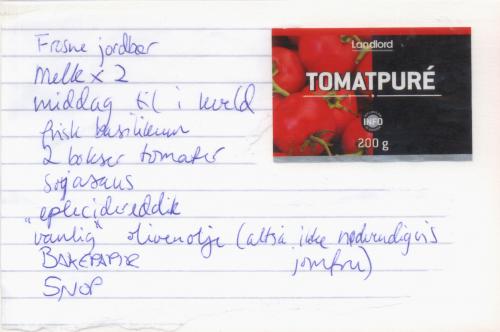 Frosne jordbær
Melk x 2
middag til i kveld
frisk basilikum
2 bokser tomater
soyasaus
eplecidereddik
"vanlig" olivenolje (altså ikke nødvendigvis
jomfru)
BAKEPAPIR
SNOP
Landlord
TOMATPURÉ
INFO
200 g